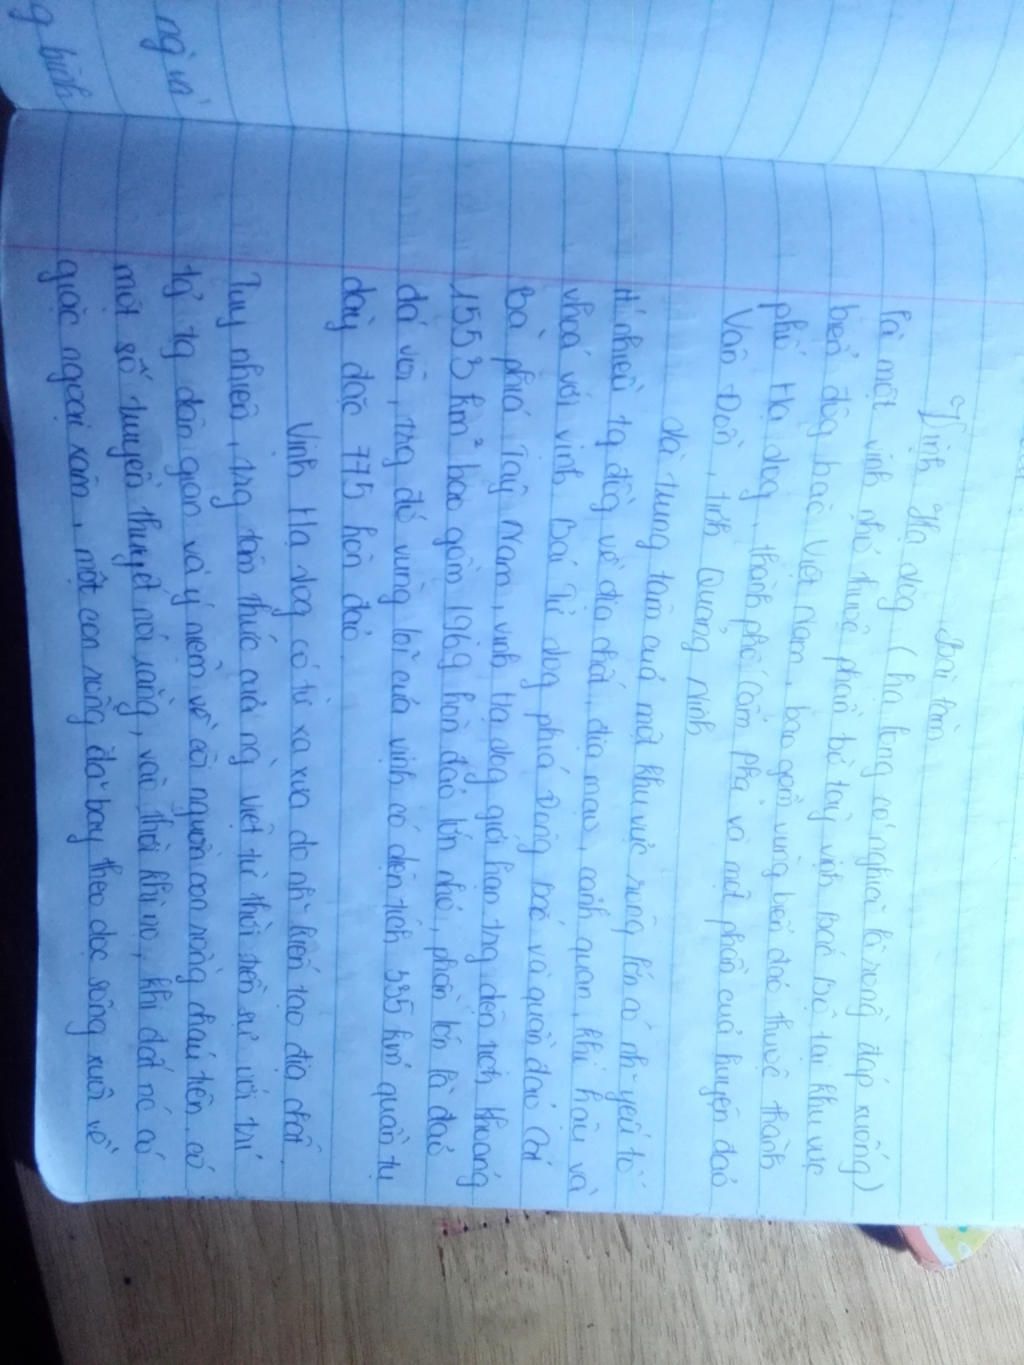 Bài làm
Vịnh Hạ dog ( hạ long có nghĩa là rồng đáp xuống )
là một vịnh nhỏ thuộc phần bờ tây vịnh bắc bộ tại khu vực
biển đông bắc Việt Nam, bao gồm vùng biển đảo thuộc thành
phố Hạ dog, thành phố Cẩm Phả và một phần của huyện đảo
Vân Đồn, tỉnh Quảng Ninh
Là trung tâm của một khu vực rộng lớn có nh~ yếu tố
ít nhiều tg đồng về địa chất, địa mạo, cảnh quan, khí hậu và
vhoá với vịnh Bái Tử dog phía Đông Bắc và quần đảo Cát
Bà phía Tây Nam, vịnh Hạ dog giới hạn trg diện tích khoảng
1553 km² bao gồm 1969 hòn đảo lớn nhỏ, phần lớn là đảo
đá vôi, trg đó vùng lõi của vịnh có diện tích 335 km² quần tụ
dày đặc 775 hòn đảo.
Vịnh Hạ dog có từ xa xưa do nh~ kiến tạo địa chất.
Tuy nhiên, trg tâm thức của ng` việt từ thời tiền sử với trí
tg` tg dân gian và ý niệm về cội nguồn con rồng cháu tiên, có
một số truyền thuyết nói rằng, vào thời khi nọ, khi đất nc có
giặc ngoại xâm, một con rồng đã bay theo dọc sông xuôi về
ng và
g bình